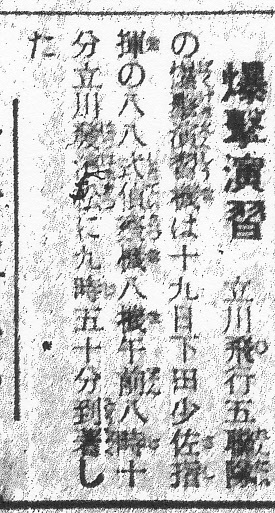 爆擊演習 立川飛行五聯隊
の爆擊演習機は十九日下田少佐指
揮の八八式偵察機八機午前八時十
分立川發に九時五十分到著し
た